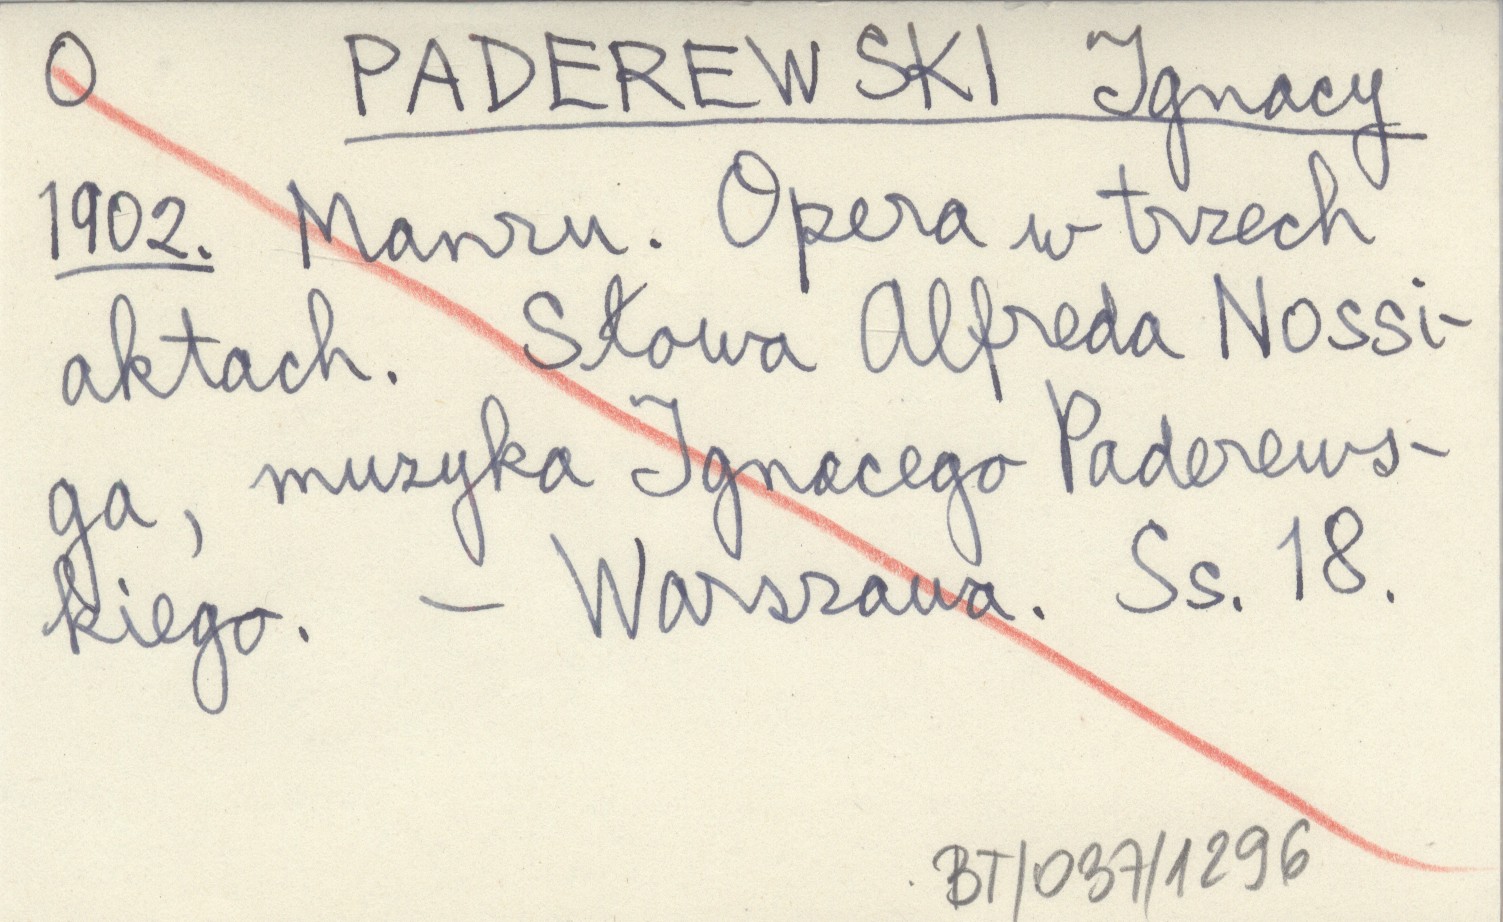 O PADEREWSKI Ignacy
1902. Manru. Opera w trzech
aktach. Słowa Alfreda Nossi-
ga, muzyka Ignacego Paderews-
kiego. — Warszawa. Ss. 18.
BT/037/1296